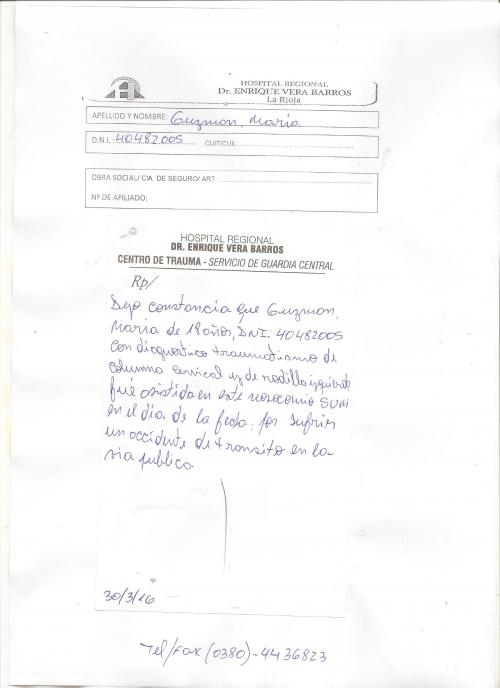 HOSPITAL REGIONAL
Dr. ENRIQUE VERA BARROS
La Rioja
APELLIDO Y NOMBRE: Guzman, Maria
D.N.I.: 40482005 CUIT/CUIL:
OBRA SOCIAL/ CIA. DE SEGURO/ ART
Nº DE AFILIADO:
HOSPITAL REGIONAL
DR. ENRIQUE VERA BARROS
CENTRO DE TRAUMA - SERVICIO DE GUARDIA CENTRAL
Rp/
Dejo constancia que Guzman,
Maria de 18 años, DNI: 40482005
con diagnostico traumatismo de
columna cervical y de rodilla izquierda
fué asistida en este nosocomio
en el dia de la fecha: por sufrir
un accidente de transito en la
via publica
30/3/16
Tel/Fax (0380)-4436823